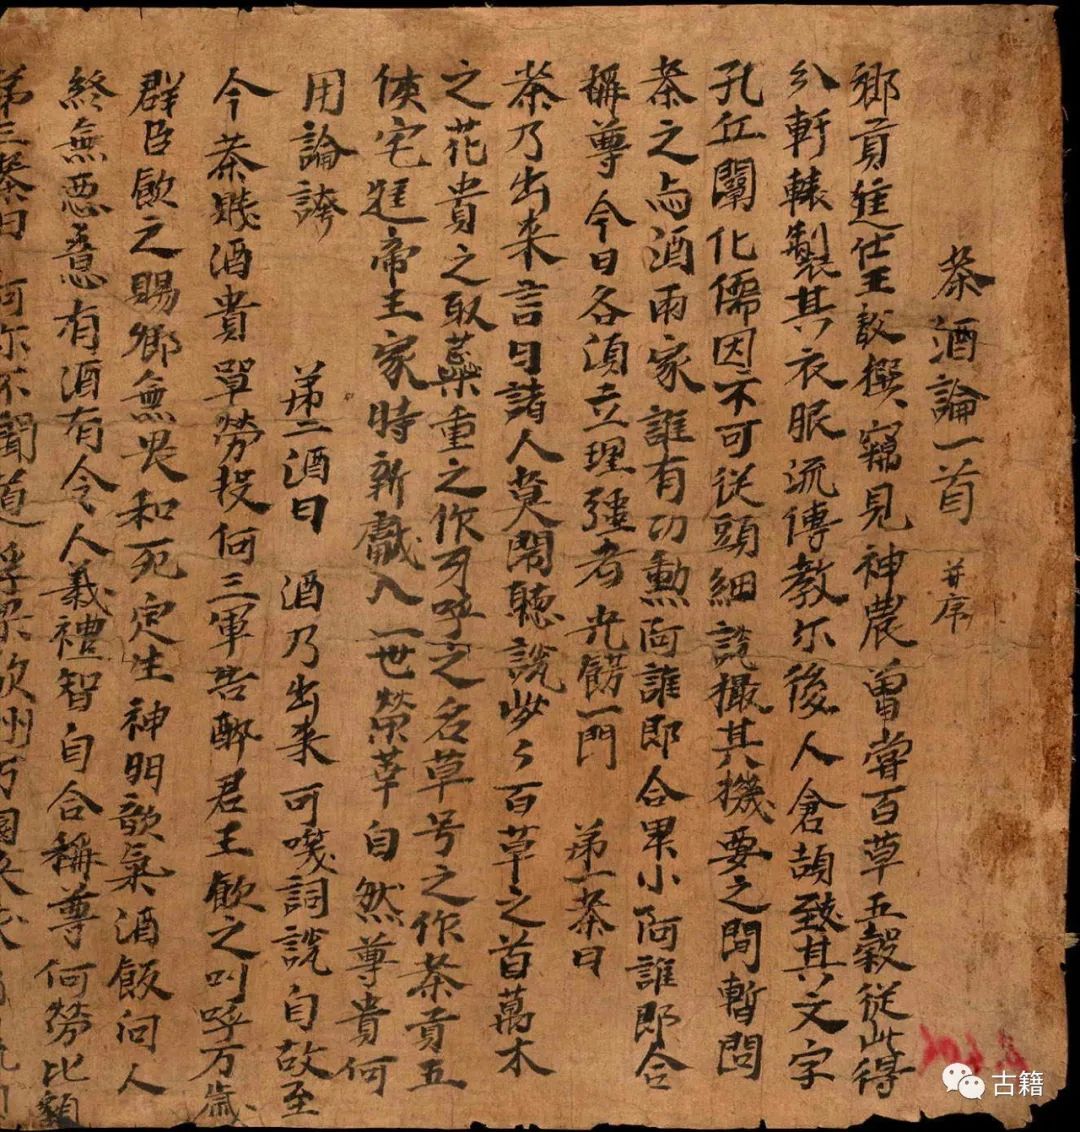 茶酒論一首 并序
鄉貢進士王敳撰 竊見神農曾嘗百草五穀從此得
分軒轅製其衣服流傳教尓後人倉頡致其文字
孔丘闡化儒因不可從頭細說撮其機要之間暫問
茶之与酒兩家誰有功勳阿誰即合卑小阿誰即合
稱尊今日各須立理強者先飾一門 苐一茶曰
茶乃出来言曰諸人莫鬧聽說些々百草之首萬木
之花貴之取蘂重之作牙呼之名草号之作茶貢五
侯宅進帝王家時新獻入一世榮華自然尊貴何
用論誇 苐二酒曰 酒乃出来可㗛詞說自故至
今茶賤酒貴單勞投河三軍告醉君王飲之叫呼万歲
群臣飲之賜卿無畏和死定生神明歆氣酒飯向人
終無惡意有酒有令人義禮智自合稱尊何勞比類
苐三茶曰 阿你不聞道浮梁歙州万國来求
古籍